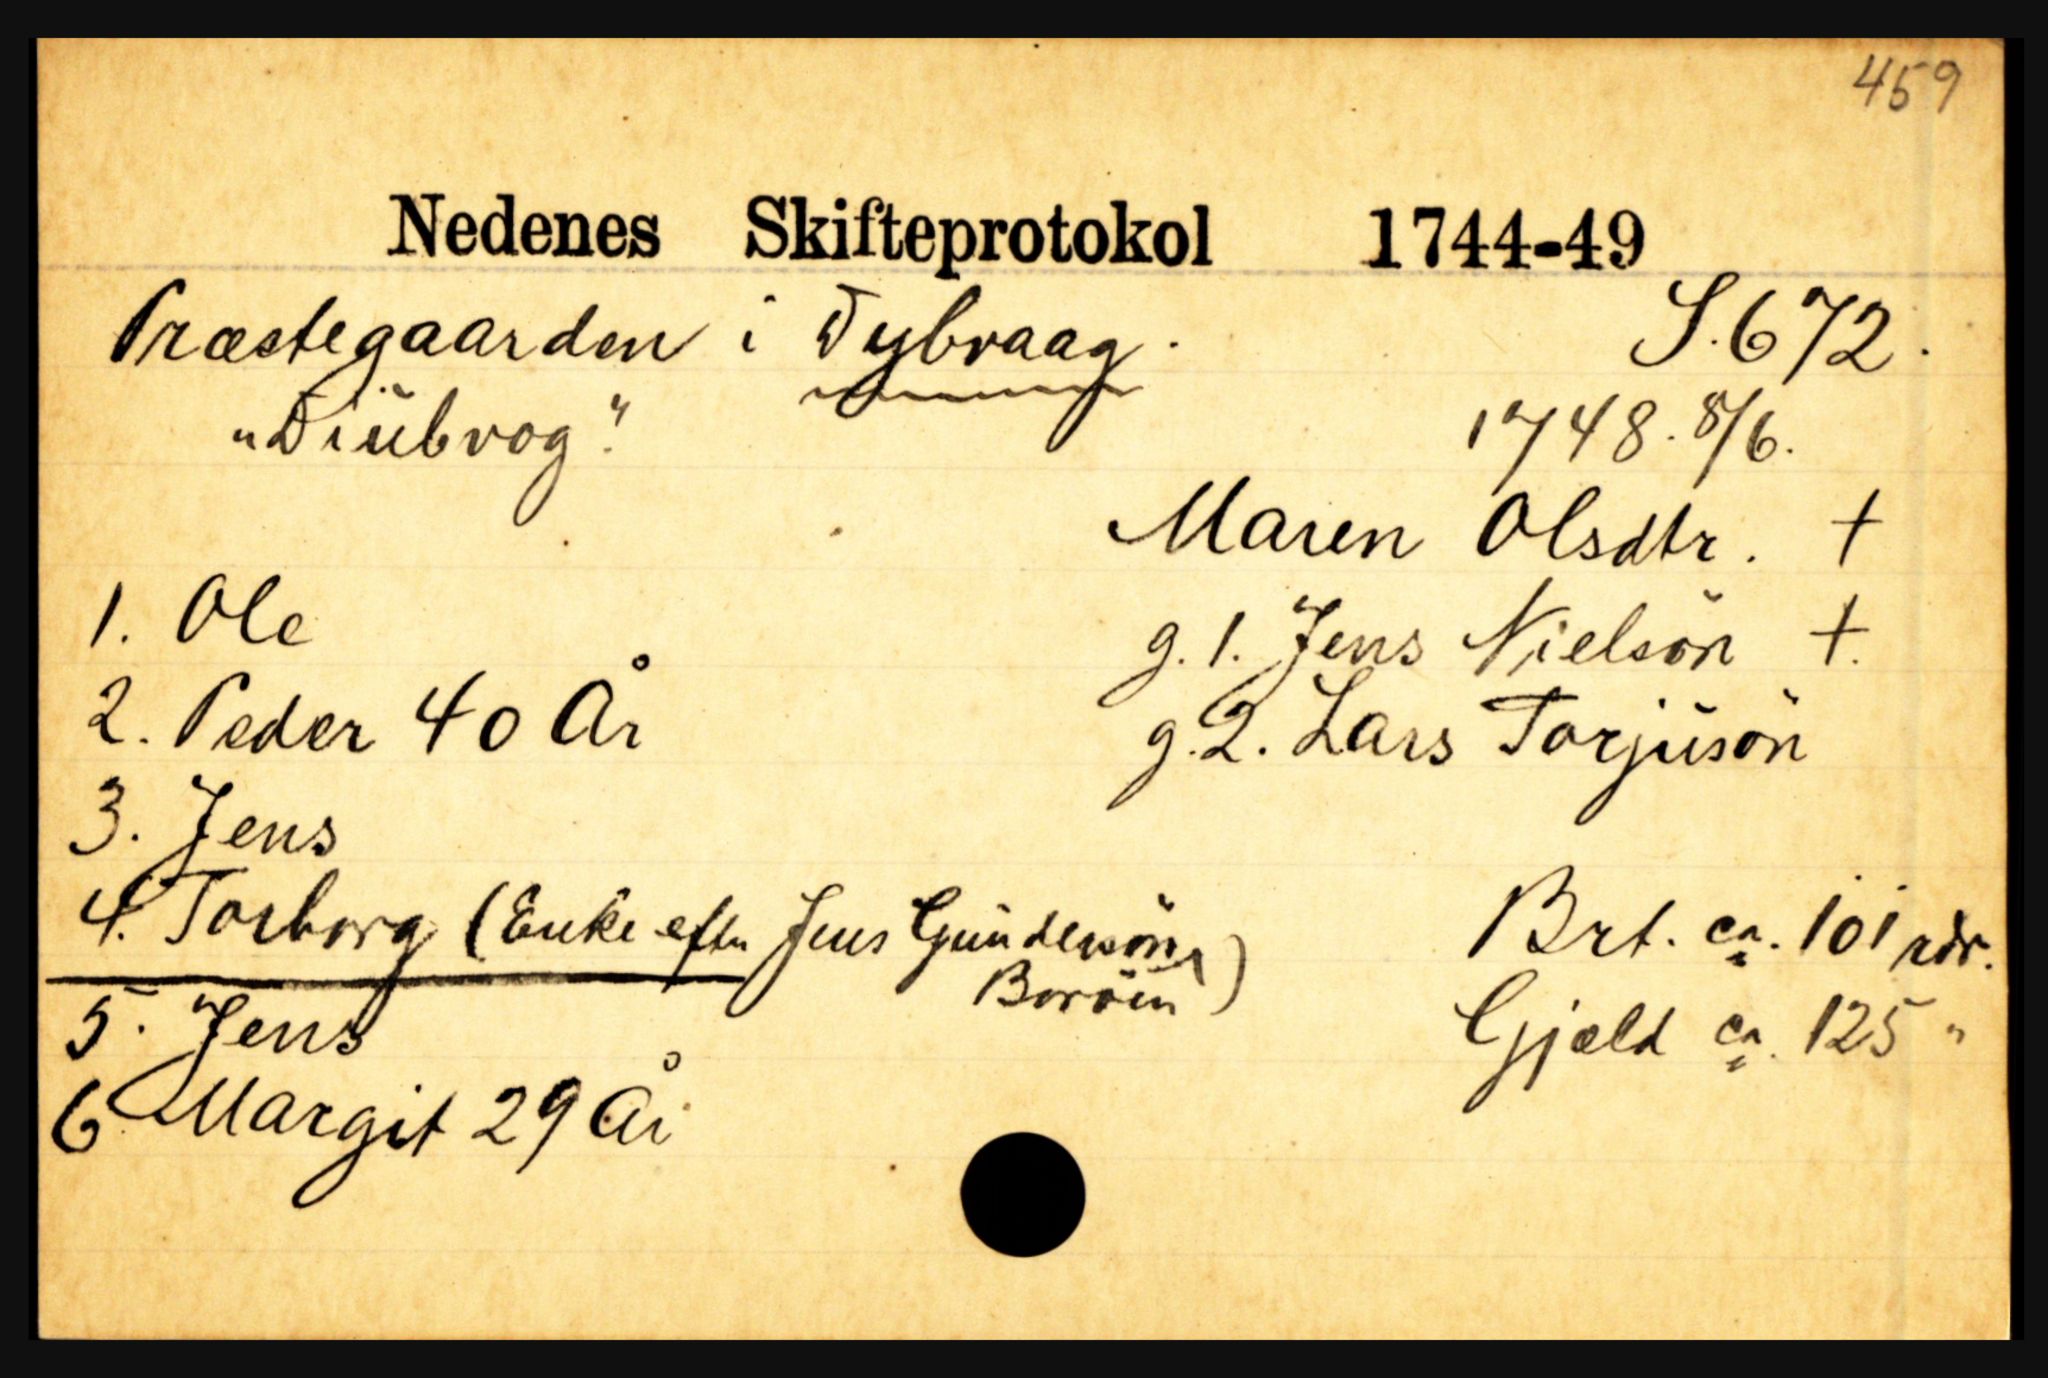 459
Nedenes Skifteprotokol 1744-49
Præstegaarden i Dybvaag. S. 672.
"Diübvog". 1748. 8/6.
Maren Olsdtr. †
1. Ole g. 1. Jens Nielsön †.
2. Peder 40 År g. 2. Lars Torjüsön
3. Jens
4. Torborg (Enke eftr Jens Gündersön, Brt. ca. 101 rdr.
Boröen)
5. Jens Gjæld ca. 125 "
6. Margit 29 År